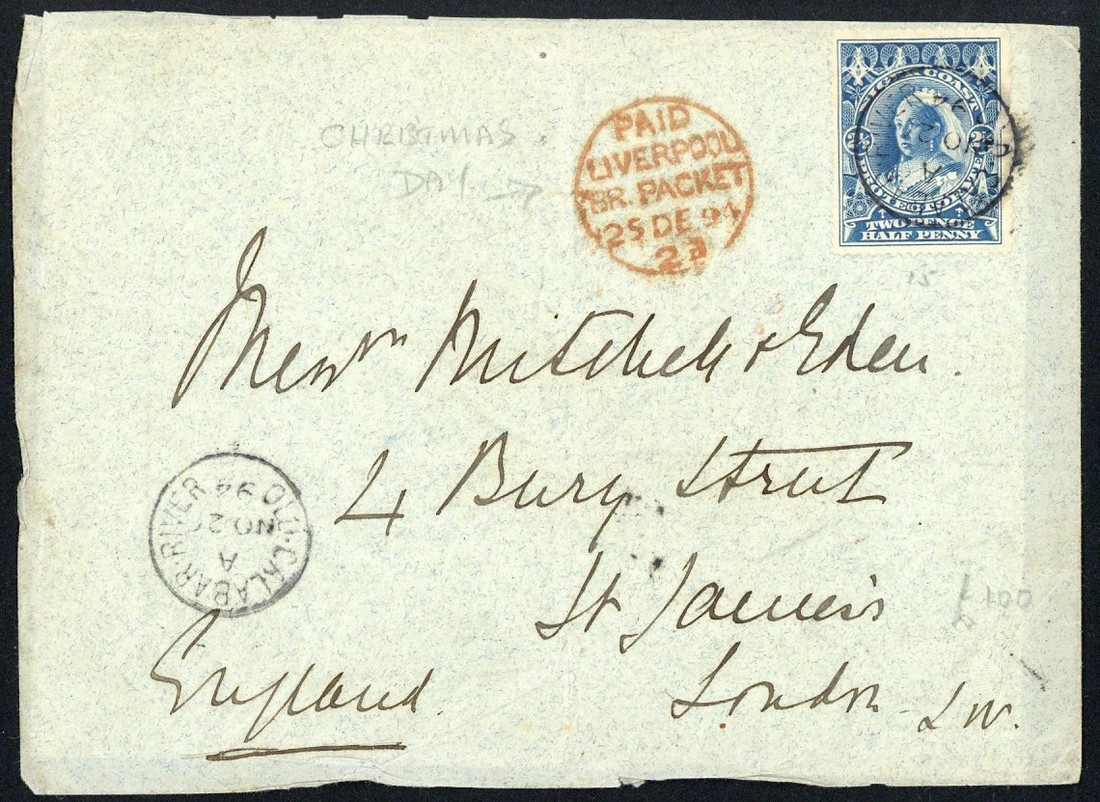 NIGER COAST
PROTECTORATE
2½ 2½
TWO PENCE
HALF PENNY
CHRISTMAS
DAY →
PAID
LIVERPOOL
BR. PACKET
25 DE 94
15
Messrs Mitchell & Eden.
4 Bury Street
St James's
London S.W.
England
OLD·CALABAR·RIVER
A
NO 2
94
100